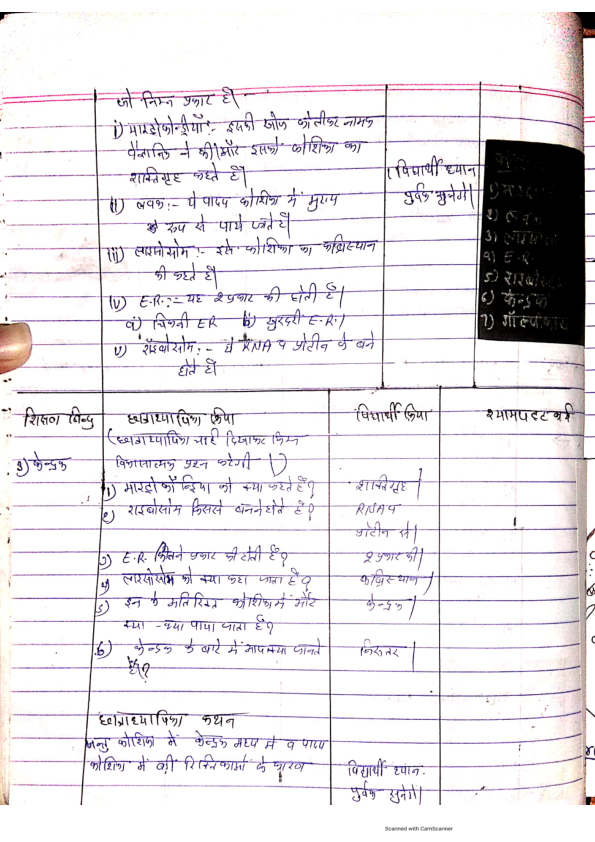 जो निम्न प्रकार है।
i) माइटोकोन्ड्रीयाँ:- इसकी खोज कोलीकर नामक
वैज्ञानिक ने की। और इसको कोशिका का
शक्तिगृह कहते हैं।
(ii) लवक:- ये पादप कोशिका में मुख्य
रूप से पाये जाते हैं।
(iii) लाइसोसोम:- इसे कोशिका का कब्रिस्थान
भी कहते हैं।
(iv) E.R.:- यह 2 प्रकार की होती है।
a) चिकनी ER b) खुरदरी E.R.।
v) राइबोसोम:- ये RNA व प्रोटीन के बने
होते हैं।
(विद्यार्थी ध्यान
पूर्वक सुनेंगे।
2) लवक
3) लाइसो
4) E.R.
5) राइबोसोम
6) केन्द्रक
7) गॉल्जीकाय
शिक्षण बिन्दु छात्राध्यापिका क्रिया विद्यार्थी क्रिया श्यामपट्ट कार्य
(छात्राध्यापिका चार्ट दिखाकर निम्न
2) केन्द्रक विकासात्मक प्रश्न करेगी।)
1) माइटोकॉन्ड्रिया को क्या कहते हैं? शक्तिगृह।
2) राइबोसोम किससे बने होते हैं? RNA व
प्रोटीन से।
3) E.R. कितने प्रकार की होती है? 2 प्रकार की।
4) लाइसोसोम को क्या कहा जाता है? कब्रिस्थान।
5) इन के अतिरिक्त कोशिका में और केन्द्रक।
क्या-क्या पाया जाता है?
6) केन्द्रक के बारे में आप क्या जानते निरुत्तर।
हैं?
छात्राध्यापिका कथन
जन्तु कोशिका में केन्द्रक मध्य में व पादप
कोशिका में बड़ी रिक्तिकाओं के कारण
विद्यार्थी ध्यान
पूर्वक सुनेंगे।
Scanned with CamScanner